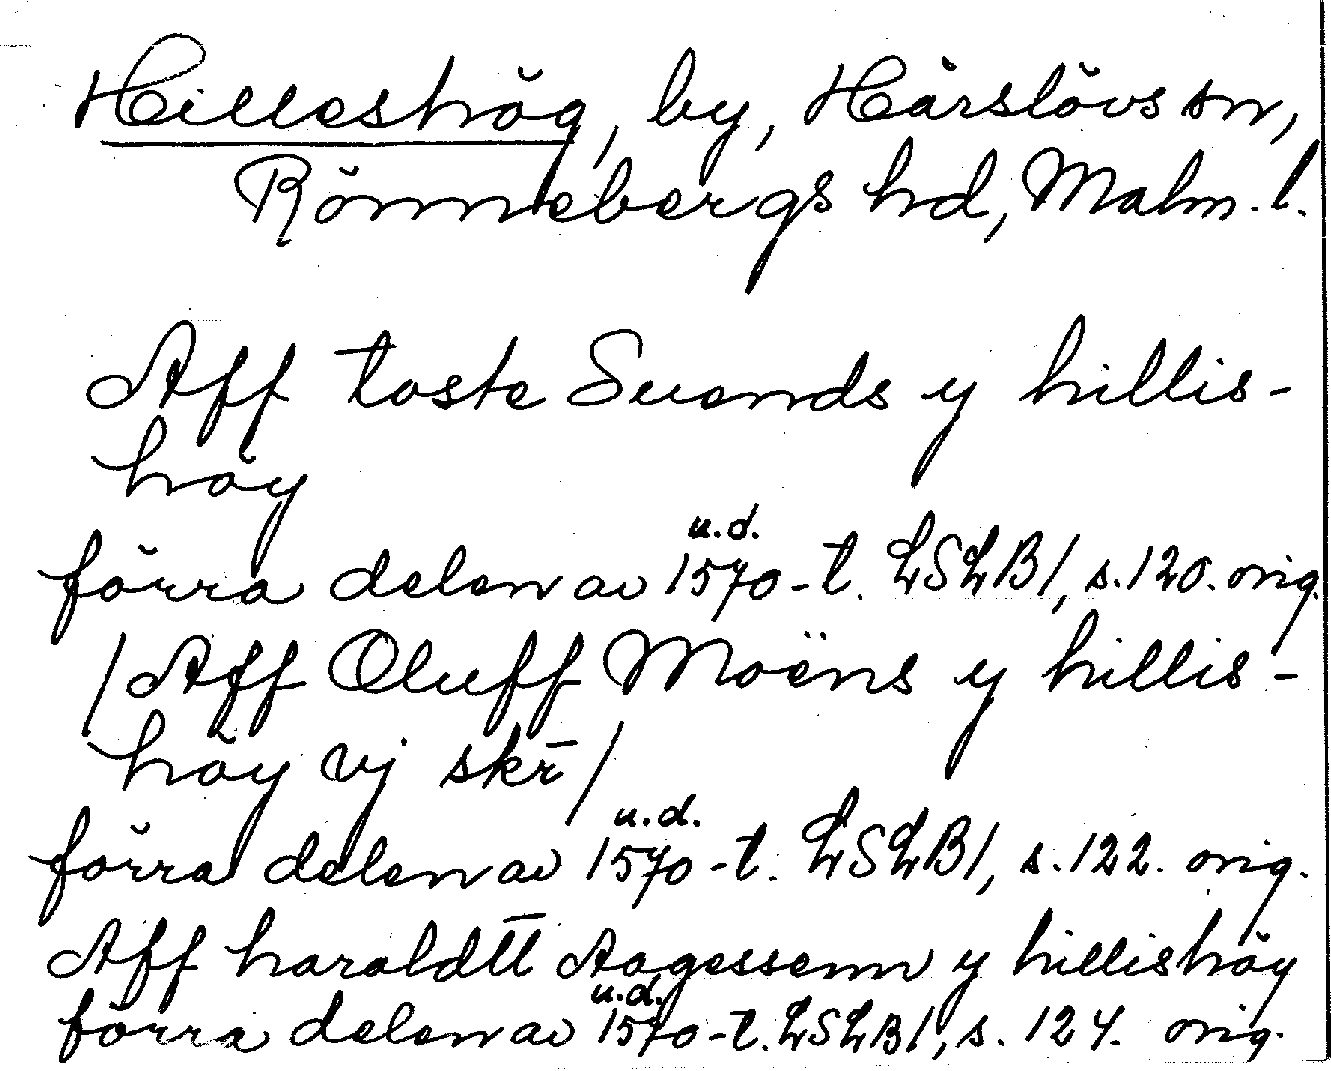 Hilleshög, by, Härslövs sn,
Rönnebergs hd, Malm. l.
Aff toste Suends y hillis-
höy
förra delen av 1570-t. u.d. LSLB 1, s. 120. orig.
/Aff Oluff Moëns y hillis-
höy vj skr̄/
förra delen av 1570-t. u.d. LSLB 1, s. 122. orig.
Aff haraldtt Aagessenn y hillishöy
förra delen av 1570-t. u.d. LSLB 1, s. 124. orig.